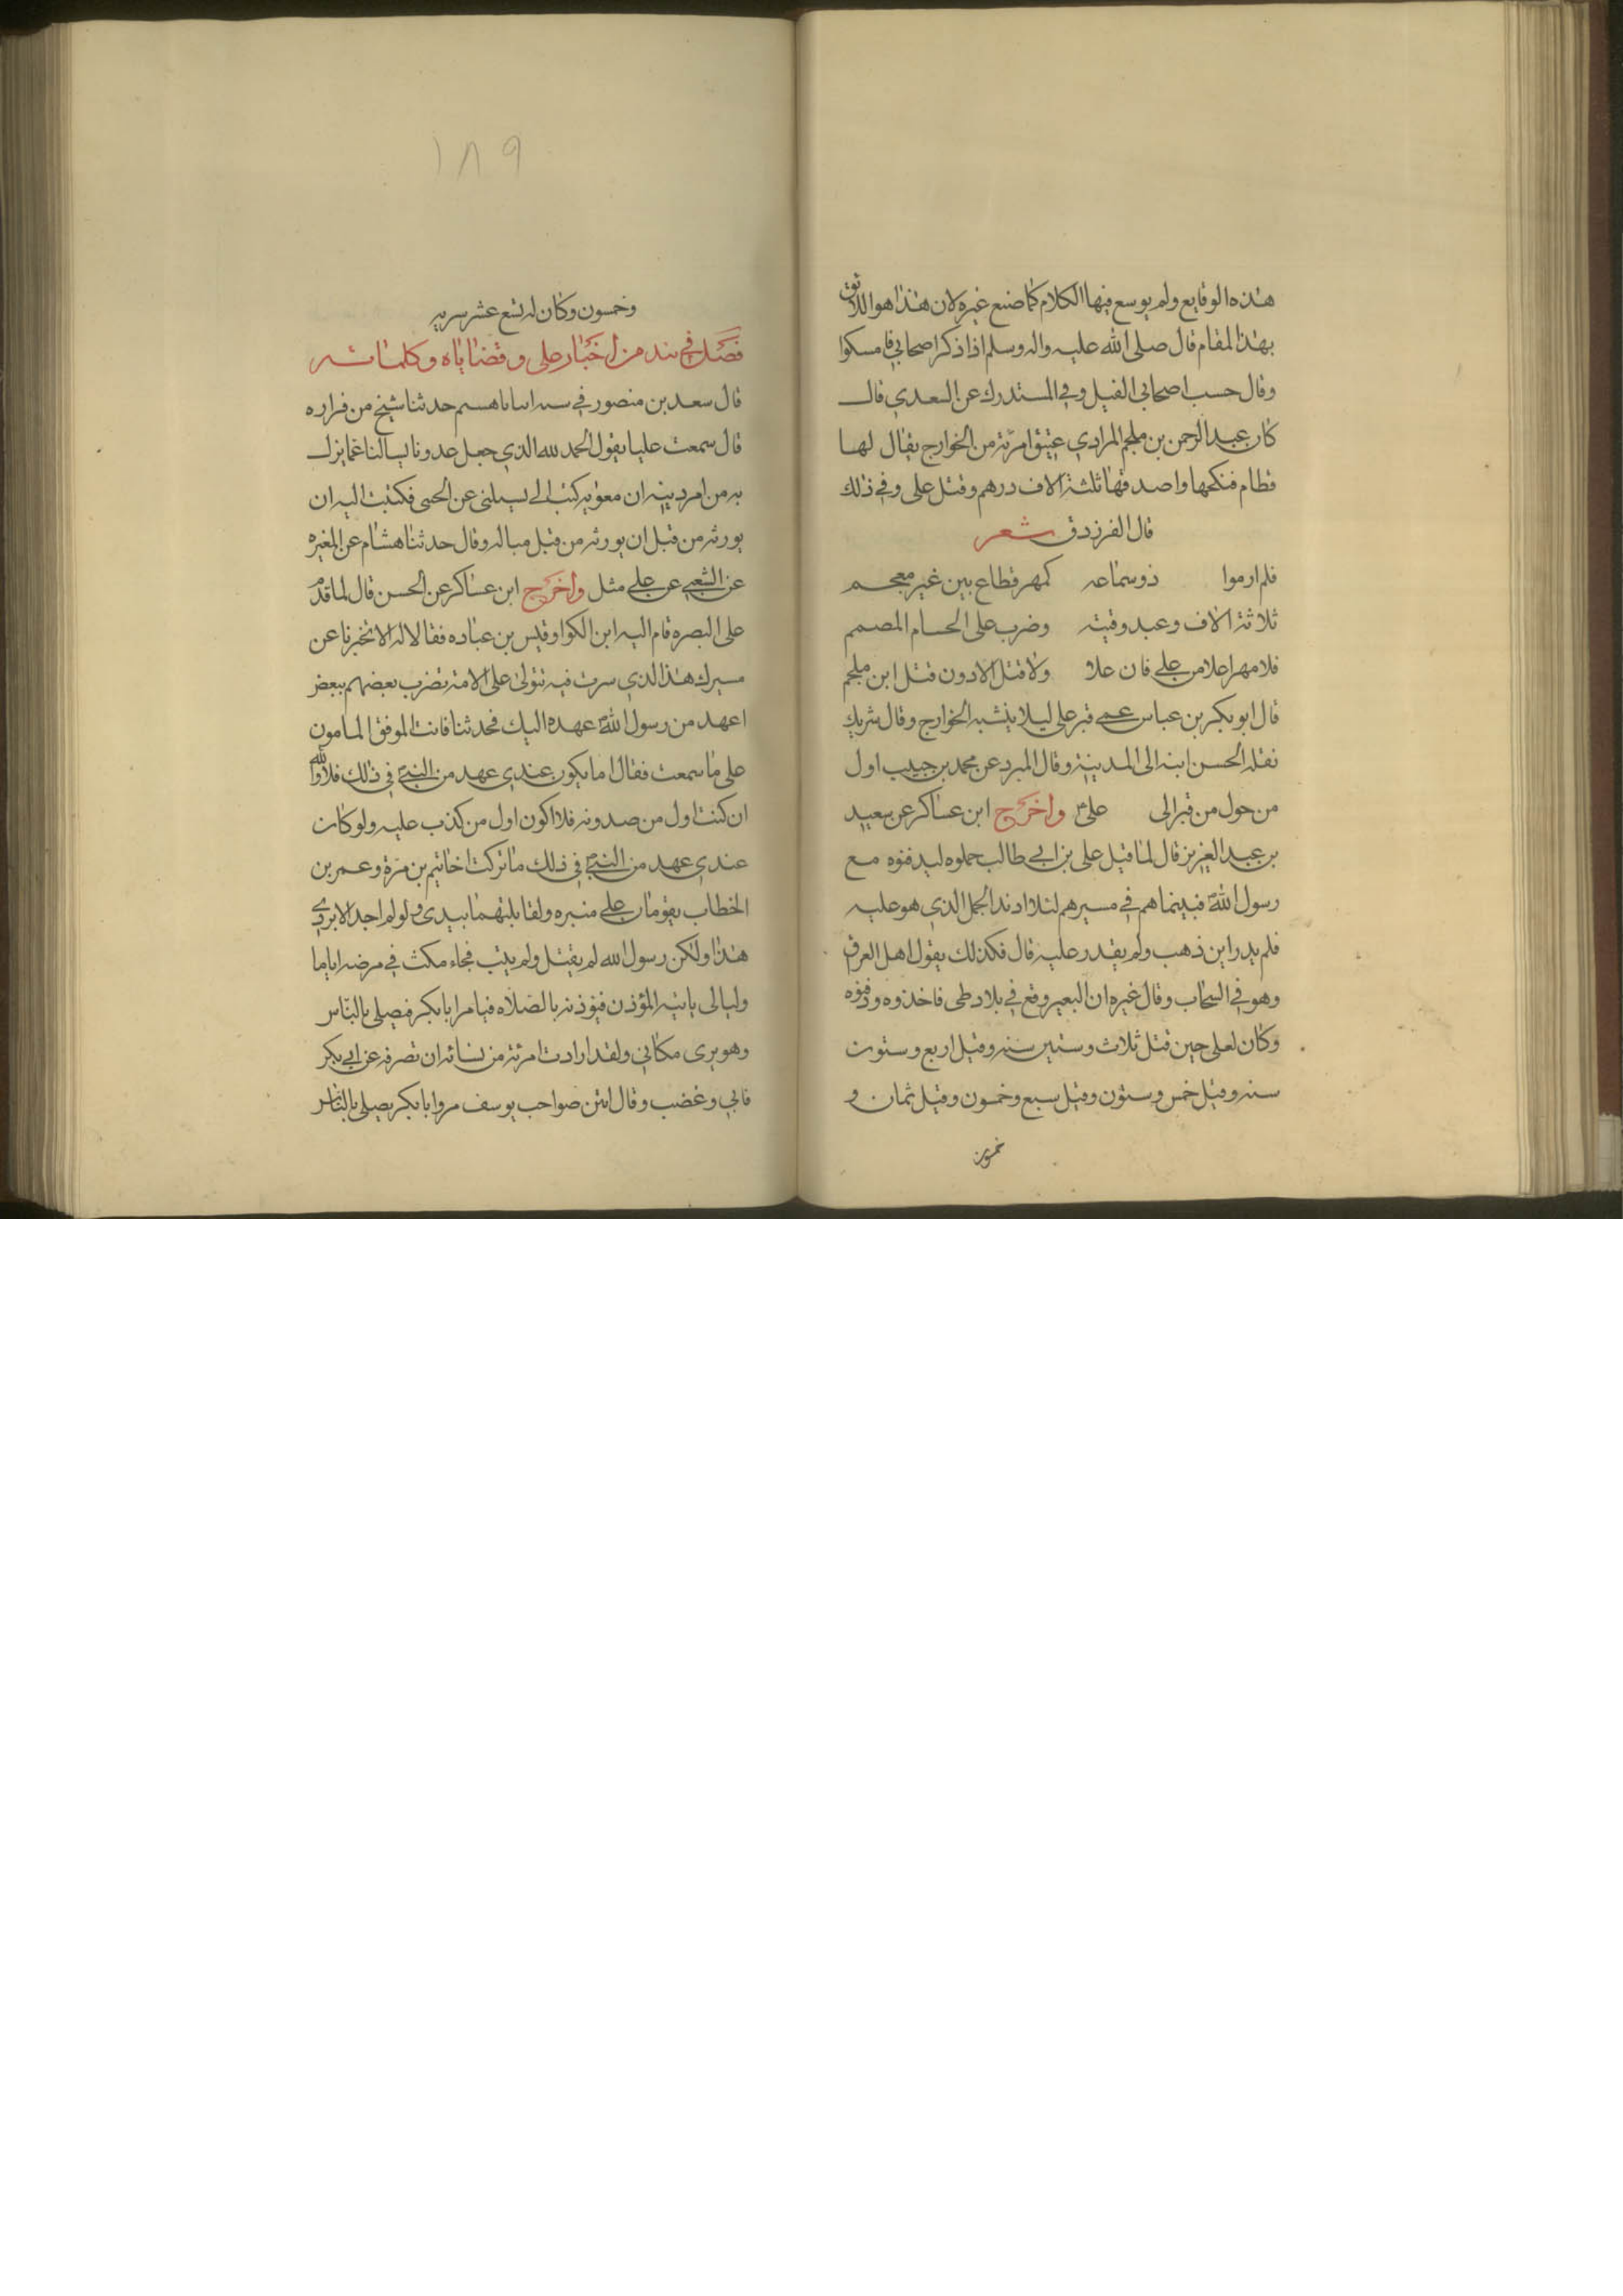 هذه الوقايع ولم يوسع فيها الكلام كما صنع غيره لان هذا هو اللائق
بهذا المقام قال صلى الله عليه واله وسلم اذا ذكر اصحابي فامسكوا
وقال حسب اصحابي القتل وفي المستدرك عن السعدي قال
كان عبد الرحمن بن ملجم المرادي عشق امرئة من الخوارج يقال لها
قطام فنكحها واصدقها ثلثة الاف درهم وقتل على وفي ذلك
قال الفرزدق شعر
فلم ار مهرا ذو سماعه كمهر قطاع بين غير معجم
ثلاثة الاف وعبد وقينه وضرب على الحسام المصمم
فلا مهر اعلا من على فان علا ولا قتل الا دون قتل ابن ملجم
قال ابو بكر بن عباس عمى قبر على ليلا ينشبه الخوارج وقال شريك
نقله الحسن ابنه الى المدينة وقال المبرد عن محمد بن حبيب اول
من حول من قبر الى على واخرج ابن عساكر عن سعيد
بن عبد العزيز قال لما قتل على بن ابي طالب حملوه ليدفنوه مع
رسول الله فبينما هم في مسيرهم لئلا اذ ند الجمل الذي هو عليه
فلم يدر اين ذهب ولم يقدر عليه قال فكذلك يقول اهل العراق
وهو في السحاب وقال غيره ان البعير وقع في بلاد طى فاخذوه ودفنوه
وكان لعلى حين قتل ثلاث وستين سنه وقيل اربع وستون
سنه وقيل خمس وستون وقيل سبع وخمسون وقيل ثمان و
خمسون
١٨٩
وخمسون وكان له تسع عشر سريه
فصل في نبذ من اخبار على وقضاياه وكلماته
قال سعد بن منصور في حدثنا شيخ من فزاره
قال سمعت عليا يقول الحمد لله الذي جعل عدونا يسالنا عما نزل
به من امر دينه ان معويه كتب الي يسئلنى عن الخنثى فكتبت اليه ان
يورثه من قبل ان يورثه من قبل مباله وقال حدثنا هشام عن المغيره
عن الشعبي عن على مثل واخرج ابن عساكر عن الحسن قال لما قدم
على البصره قام اليه ابن الكوا وقيس بن عباده فقالا له الا تخبرنا عن
مسيرك هذا الذي سرت فيه تتولى على الامة تضرب بعضهم ببعض
اعهد من رسول الله عهده اليك فحدثنا فانت الموفق المامون
على ما سمعت فقال اما يكون عندي عهد من النبي في ذلك فلا والله
ان كنت اول من صدق به فلا اكون اول من كذب عليه ولو كان
عندي عهد من النبي في ذلك ما تركت اخا تيم بن مرة وعمر بن
الخطاب يقومان على منبره ولقابلتهما بيدي ولو لم اجد الا بردي
هذا ولكن رسول الله لم يقتل ولم يلت فجاء مكث في مرضه اياما
وليالى ياتيه المؤذن فيؤذنه بالصلاه فيامر ابا بكر فيصلى بالناس
وهو يرى مكاني ولقد ارادت امرئة من نسائه ان تصرفه عن ابي بكر
فابي وغضب وقال انتن صواحب يوسف مروا ابا بكر يصلى بالناس